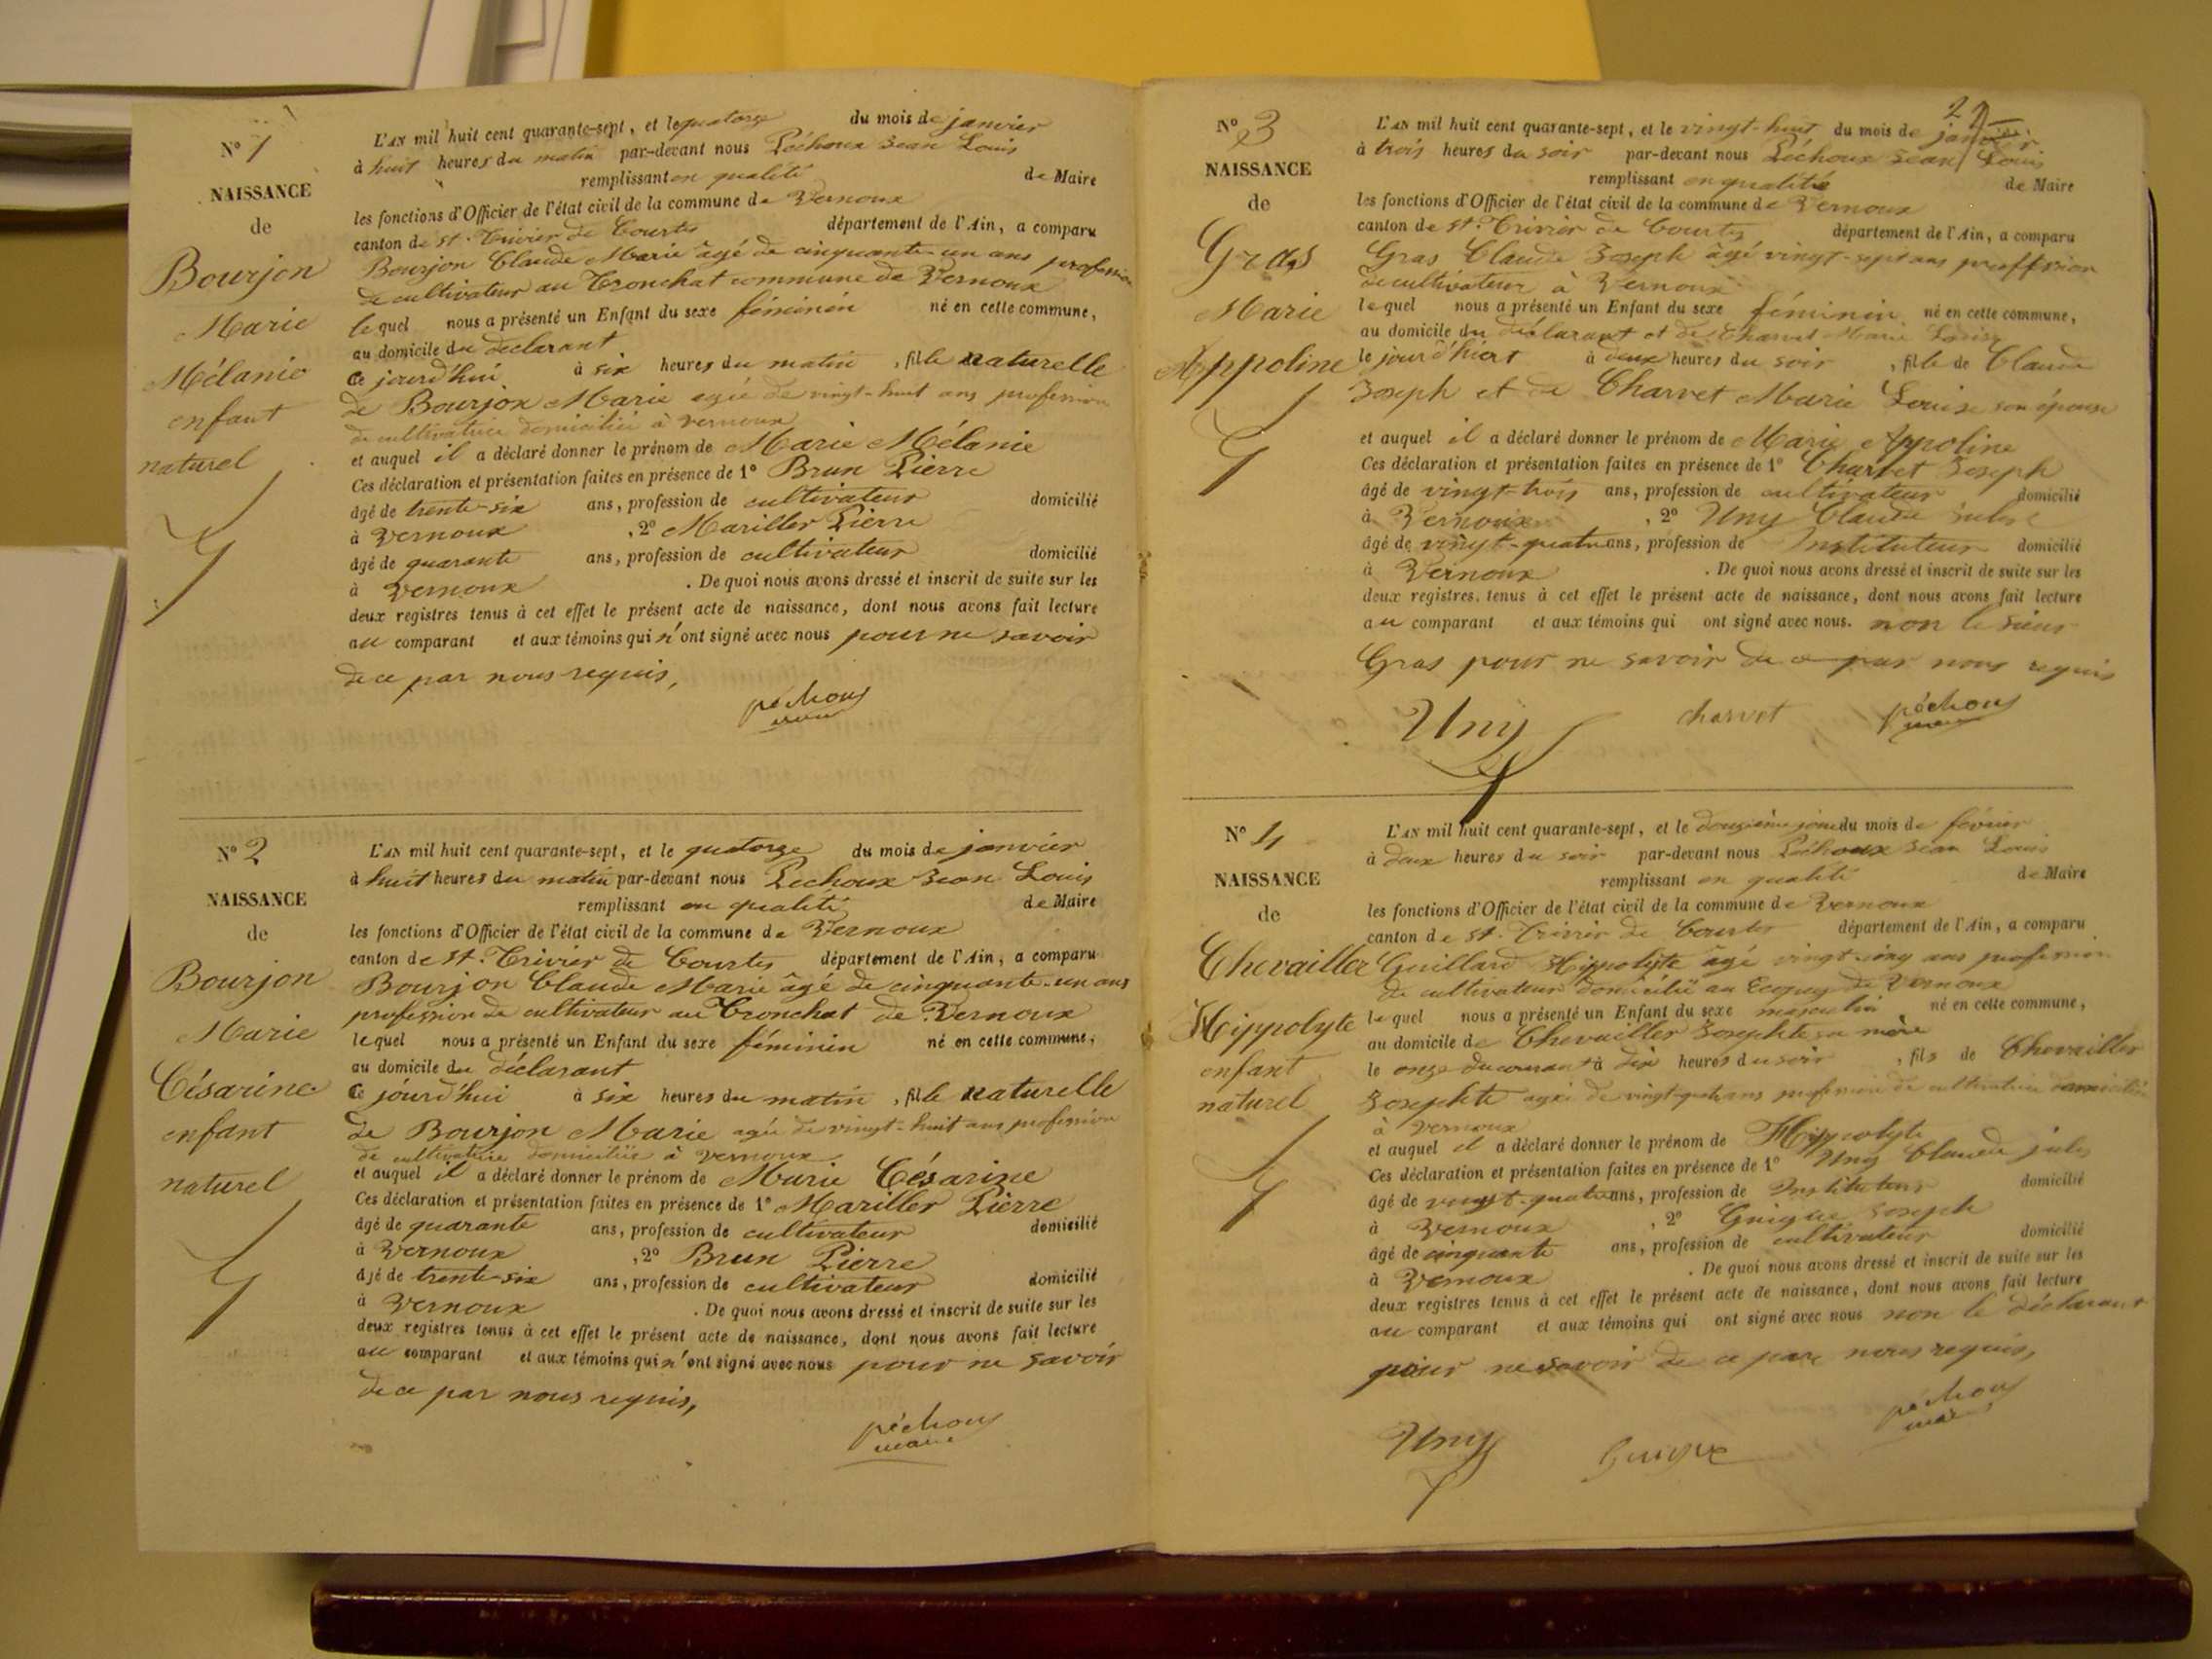 N° 1
NAISSANCE
de
Bourjon
Marie
Mélanie
enfant
naturel
L'AN mil huit cent quarante-sept, et le quatorze du mois de janvier
à huit heures du matin par-devant nous Péchoux Jean Louis
remplissant en qualité de Maire
les fonctions d'Officier de l'état civil de la commune de Vernoux
canton de St. Trivier de Courtes département de l'Ain, a comparu
Bourjon Claude Marie âgé de cinquante un ans profession
de cultivateur au Tronchat commune de Vernoux
lequel nous a présenté un Enfant du sexe féminin né en cette commune,
au domicile du déclarant
ce jourd'hui à six heures du matin, fille naturelle
de Bourjon Marie agée de vingt-huit ans profession
de cultivatrice domiciliée à Vernoux
et auquel il a déclaré donner le prénom de Marie Mélanie
Ces déclaration et présentation faites en présence de 1° Brun Pierre
âgé de trente-six ans, profession de cultivateur domicilié
à Vernoux, 2° Mariller Pierre
âgé de quarante ans, profession de cultivateur domicilié
à Vernoux. De quoi nous avons dressé et inscrit de suite sur les
deux registres tenus à cet effet le présent acte de naissance, dont nous avons fait lecture
au comparant et aux témoins qui n'ont signé avec nous pour ne savoir
de ce par nous requis,
péchoux
maire
N° 2
NAISSANCE
de
Bourjon
Marie
Césarine
enfant
naturel
L'AN mil huit cent quarante-sept, et le quatorze du mois de janvier
à huit heures du matin par-devant nous Péchoux Jean Louis
remplissant en qualité de Maire
les fonctions d'Officier de l'état civil de la commune de Vernoux
canton de St. Trivier de Courtes département de l'Ain, a comparu
Bourjon Claude Marie âgé de cinquante-un ans
profession de cultivateur au Tronchat de Vernoux
lequel nous a présenté un Enfant du sexe féminin né en cette commune,
au domicile du déclarant
ce jourd'hui à six heures du matin, fille naturelle
de Bourjon Marie agée de vingt-huit ans profession
de cultivatrice domiciliée à Vernoux
et auquel il a déclaré donner le prénom de Marie Césarine
Ces déclaration et présentation faites en présence de 1° Mariller Pierre
âgé de quarante ans, profession de cultivateur domicilié
à Vernoux, 2° Brun Pierre
âgé de trente-six ans, profession de cultivateur domicilié
à Vernoux. De quoi nous avons dressé et inscrit de suite sur les
deux registres tenus à cet effet le présent acte de naissance, dont nous avons fait lecture
au comparant et aux témoins qui n'ont signé avec nous pour ne savoir
de ce par nous requis,
péchoux
maire
2
N° 3
NAISSANCE
de
Gras
Marie
Appoline
L'AN mil huit cent quarante-sept, et le vingt-huit du mois de janvier
à trois heures du soir par-devant nous Péchoux Jean Louis
remplissant en qualité de Maire
les fonctions d'Officier de l'état civil de la commune de Vernoux
canton de St. Trivier de Courtes département de l'Ain, a comparu
Gras Claude Joseph âgé vingt-sept ans proffesion
de cultivateur à Vernoux
lequel nous a présenté un Enfant du sexe féminin né en cette commune,
au domicile du déclarant et de Charvet Marie Louise
le jour d'hiert à deux heures du soir, fille de Claude
Joseph et de Charvet Marie Louise son épouse
et auquel il a déclaré donner le prénom de Marie Appoline
Ces déclaration et présentation faites en présence de 1° Charvet Joseph
âgé de vingt-trois ans, profession de cultivateur domicilié
à Vernoux, 2° Uny Claude Jules
âgé de vingt-quatre ans, profession de Instituteur domicilié
à Vernoux. De quoi nous avons dressé et inscrit de suite sur les
deux registres tenus à cet effet le présent acte de naissance, dont nous avons fait lecture
au comparant et aux témoins qui ont signé avec nous. non le sieur
Gras pour ne savoir de ce par nous requis
Uny charvet péchoux
maire
N° 4
NAISSANCE
de
Chevailler
Hippolyte
enfant
naturel
L'AN mil huit cent quarante-sept, et le douzième jour du mois de février
à deux heures du soir par-devant nous Péchoux Jean Louis
remplissant en qualité de Maire
les fonctions d'Officier de l'état civil de la commune de Vernoux
canton de St. Trivier de Courtes département de l'Ain, a comparu
Guillard Hippolyte âgé vingt-cinq ans profession
de cultivateur domicilié au de Vernoux
lequel nous a présenté un Enfant du sexe masculin né en cette commune,
au domicile de Chevailler Josephte sa mère
le onze du courant à dix heures du soir, fils de Chevailler
Josephte agée de vingt-quatre ans profession de cultivatrice domiciliée
à Vernoux
et auquel il a déclaré donner le prénom de Hippolyte
Ces déclaration et présentation faites en présence de 1° Uny Claude jules
âgé de vingt-quatre ans, profession de Instituteur domicilié
à Vernoux, 2° Guigue Joseph
âgé de cinquante ans, profession de cultivateur domicilié
à Vernoux. De quoi nous avons dressé et inscrit de suite sur les
deux registres tenus à cet effet le présent acte de naissance, dont nous avons fait lecture
au comparant et aux témoins qui ont signé avec nous non le déclarant
pour ne savoir de ce par nous requis,
Uny Guigue péchoux
maire